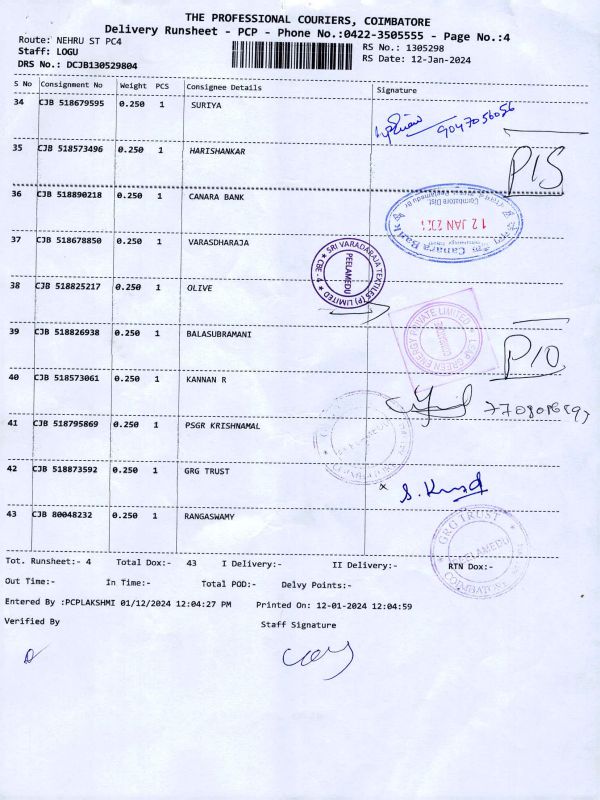 THE PROFESSIONAL COURIERS, COIMBATORE
Delivery Runsheet - PCP - Phone No.:0422-3505555 - Page No.:4
Route: NEHRU ST PC4
RS No.: 1305298
Staff: LOGU
RS Date: 12-Jan-2024
DRS No.: DCJB130529804
S No Consignment No Weight PCS Consignee Details Signature
34 CJB 518679595 0.250 1 SURIYA
9047056056
35 CJB 518573496 0.250 1 HARISHANKAR
P/S
36 CJB 518890218 0.250 1 CANARA BANK
Canara Bank
12 JAN 202
Coimbatore Dist.
37 CJB 518678850 0.250 1 VARADHARAJA
SRI VARADARAJA TEXTILES (P) LIMITED
PEELAMEDU
CBE - 4
38 CJB 518825217 0.250 1 OLIVE
GREEN ENERGY PRIVATE LIMITED
39 CJB 518826938 0.250 1 BALASUBRAMANI
P/O
40 CJB 518573061 0.250 1 KANNAN R
41 CJB 518795869 0.250 1 PSGR KRISHNAMAL
42 CJB 518873592 0.250 1 GRG TRUST
x S.
43 CJB 80048232 0.250 1 RANGASWAMY
GRG TRUST
PEELAMEDU
COIMBATORE
Tot. Runsheet:- 4 Total Dox:- 43 I Delivery:- II Delivery:- RTN Dox:-
Out Time:- In Time:- Total POD:- Delvy Points:-
Entered By :PCPLAKSHMI 01/12/2024 12:04:27 PM Printed On: 12-01-2024 12:04:59
Verified By Staff Signature